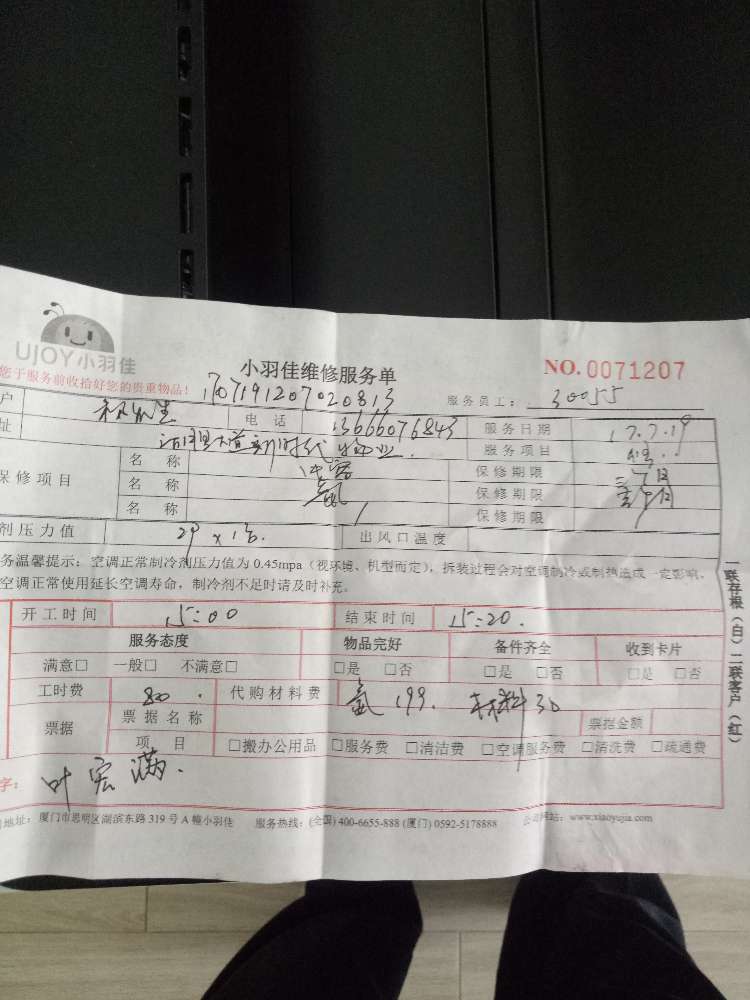 UJOY小羽佳
小羽佳维修服务单
NO.0071207
您于服务前收拾好您的贵重物品!
1707191207020813
服务员工: 30055
户
电话 13666076843
服务日期 17.7.19
址
服务项目
保修项目
名 称
保修期限
名 称 氟
保修期限
名 称 /
保修期限
剂压力值
出风口温度
务温馨提示:空调正常制冷剂压力值为 0.45mpa(视环境、机型而定),拆装过程会对空调制冷或制热造成一定影响。
空调正常使用延长空调寿命,制冷剂不足时请及时补充。
开工时间 15:00 结束时间 15:20.
服务态度 物品完好 备件齐全 收到卡片
满意□ 一般□ 不满意□ □是 □否 □是 □否 □是 □否
工时费 代购材料费 氟 199. 材料30
票据 票据名称 票据金额
项 目 □搬办公用品 □服务费 □清洁费 □空调服务费 □清洗费 □疏通费
字: 叶宏满.
地址:厦门市思明区湖滨东路 319 号 A 幢小羽佳 服务热线:(全国) 400-6655-888 (厦门) 0592-5178888 公司网站: www.xiaoyujia.com
一联存根(白)二联客户(红)